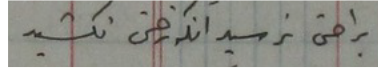 براحتی نرسید آنکه زحمتی نکشید